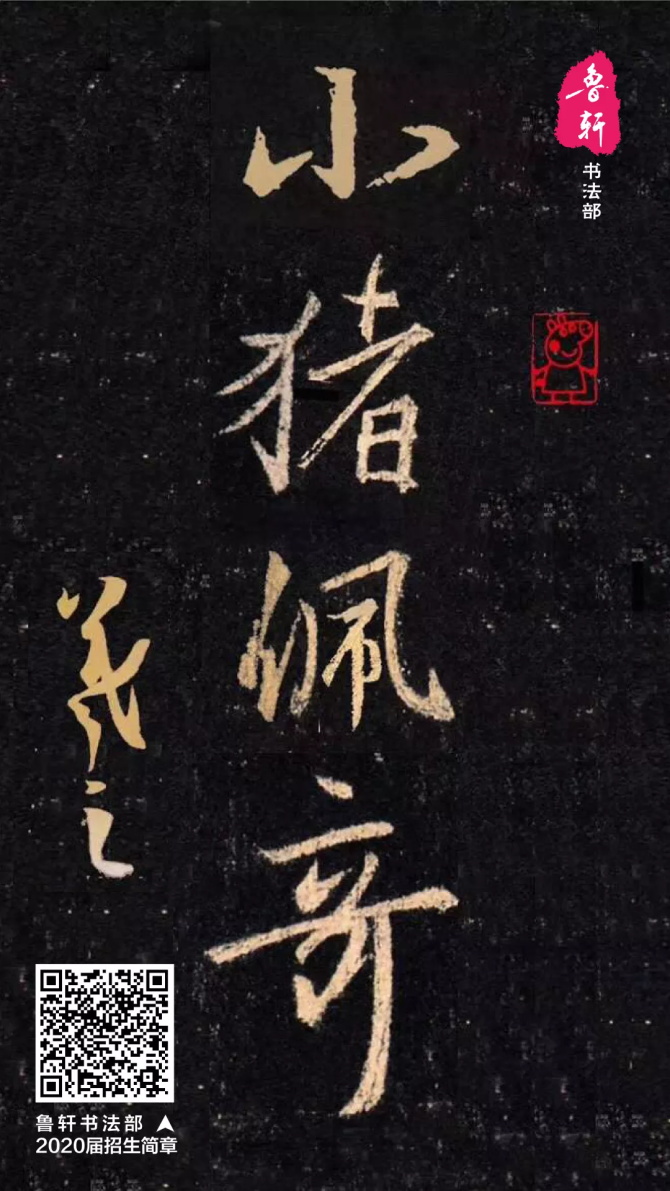 小猪佩奇
羲之
鲁轩
书法部
鲁轩书法部
2020届招生简章